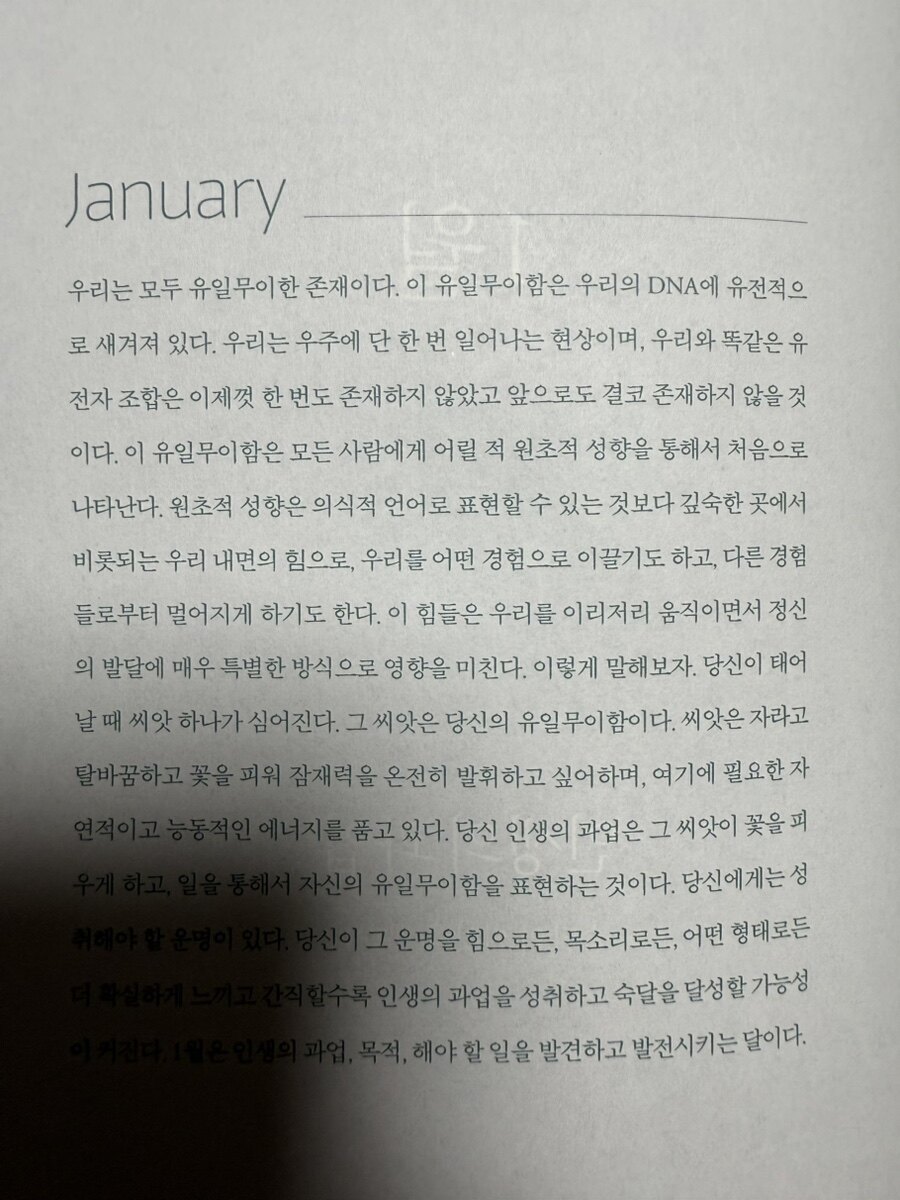 January
우리는 모두 유일무이한 존재이다. 이 유일무이함은 우리의 DNA에 유전적으
로 새겨져 있다. 우리는 우주에 단 한 번 일어나는 현상이며, 우리와 똑같은 유
전자 조합은 이제껏 한 번도 존재하지 않았고 앞으로도 결코 존재하지 않을 것
이다. 이 유일무이함은 모든 사람에게 어릴 적 원초적 성향을 통해서 처음으로
나타난다. 원초적 성향은 의식적 언어로 표현할 수 있는 것보다 깊숙한 곳에서
비롯되는 우리 내면의 힘으로, 우리를 어떤 경험으로 이끌기도 하고, 다른 경험
들로부터 멀어지게 하기도 한다. 이 힘들은 우리를 이리저리 움직이면서 정신
의 발달에 매우 특별한 방식으로 영향을 미친다. 이렇게 말해보자. 당신이 태어
날 때 씨앗 하나가 심어진다. 그 씨앗은 당신의 유일무이함이다. 씨앗은 자라고
탈바꿈하고 꽃을 피워 잠재력을 온전히 발휘하고 싶어하며, 여기에 필요한 자
연적이고 능동적인 에너지를 품고 있다. 당신 인생의 과업은 그 씨앗이 꽃을 피
우게 하고, 일을 통해서 자신의 유일무이함을 표현하는 것이다. 당신에게는 성
취해야 할 운명이 있다. 당신이 그 운명을 힘으로든, 목소리로든, 어떤 형태로든
더 확실하게 느끼고 간직할수록 인생의 과업을 성취하고 숙달을 달성할 가능성
이 커진다. 1월은 인생의 과업, 목적, 해야 할 일을 발견하고 발전시키는 달이다.